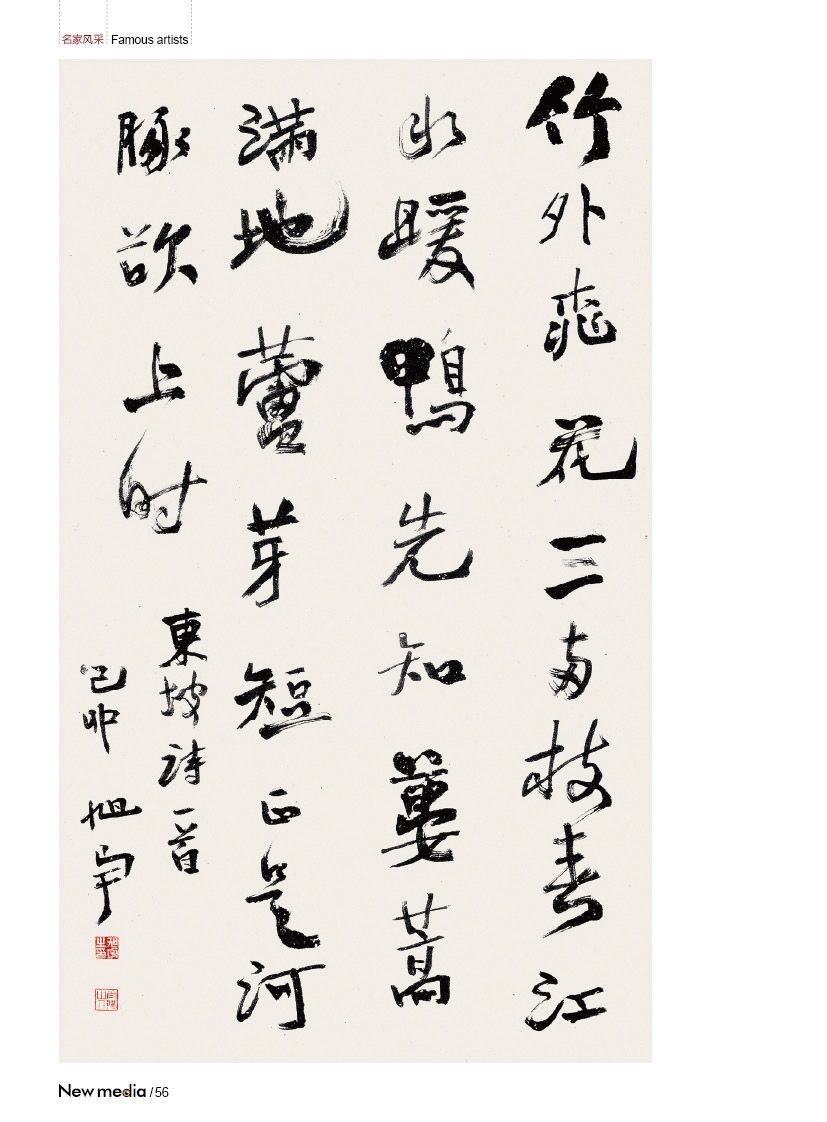 名家风采 Famous artists
竹外桃花三两枝春江
水暖鴨先知蔞蒿
满地蘆芽短正是河
豚欲上时
東坡诗一首
己卯 旭宇
New media /56